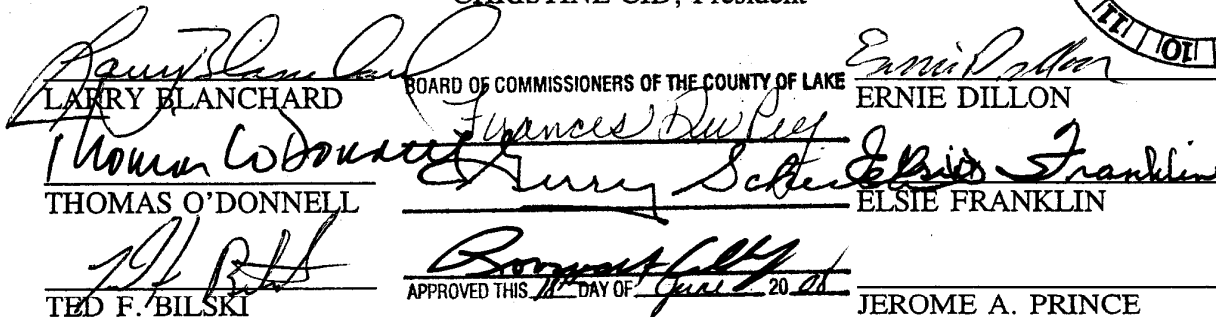 CHRISTINE CID, President
Larry Blanchard
LARRY BLANCHARD
Thomas O'Donnell
THOMAS O'DONNELL
TED F. BILSKI
BOARD OF COMMISSIONERS OF THE COUNTY OF LAKE
Frances DuPey
Gerry Scheub
APPROVED THIS DAY OF June 20
Ernie Dillon
ERNIE DILLON
Elsie Franklin
ELSIE FRANKLIN
JEROME A. PRINCE
11 10